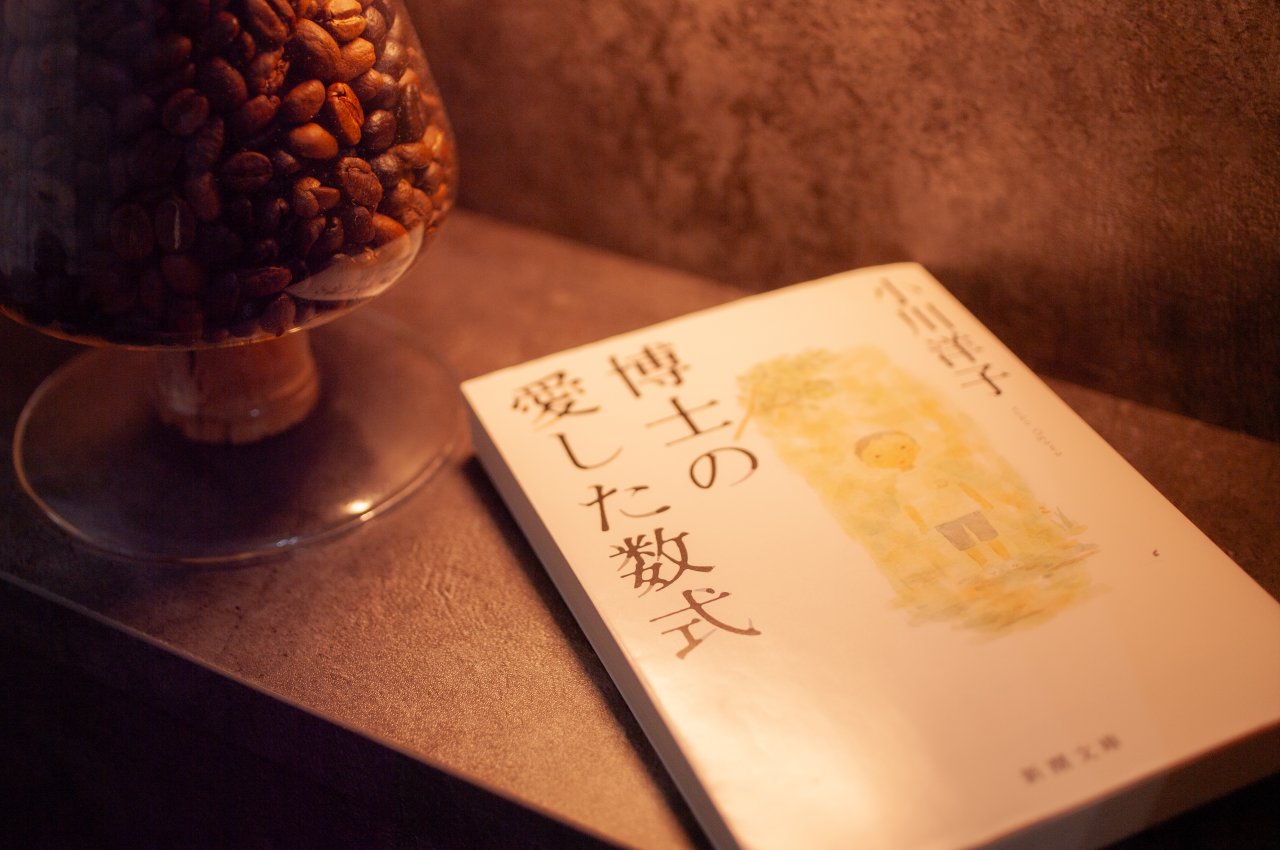 小川洋子
Yoko Ogawa
博士の
愛した数式
新潮文庫